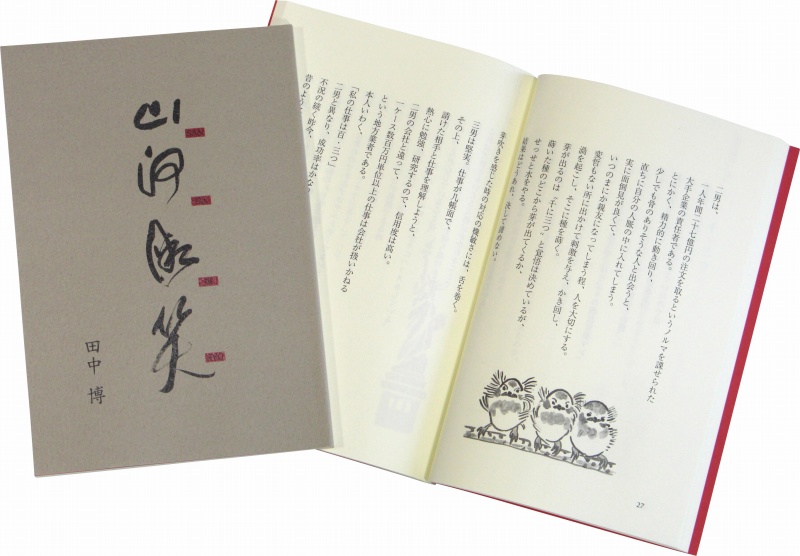 山河微笑
田中 博
二男は、
一人年間二十七億円の注文を取るというノルマを課せられた
大手企業の責任者である。
とにかく、精力的に動き回り、
少しでも骨のありそうな人と出会うと、
直ちに自分の人脈の中に入れてしまう。
実に面倒見が良くて、
いつのまにか親友になってしまう程、人を大切にする。
変哲もない所に出かけて刺激を与え、かき回し、
渦を起こし、そこに種を蒔く。
芽が出るのは〝千に三つ〟と覚悟は決めているが、
蒔いた種のどこから芽が出てくるか、
せっせと水をやる。
結果はどうあれ、決して諦めない。
27
芽吹きを感じた時の対応の機敏さには、舌を巻く。
三男は堅実。仕事が几帳面で、
その上、
請けた相手と仕事を理解しようと、
熱心に勉強、研究するので、信用度は高い。
二男の会社と違って、
一ケース数百万円単位以上の仕事は会社が扱いかねる
という地方業者である。
本人いわく、
「私の仕事は百・三つ」
二男と異なり、成功率はかな
不況の続く昨今、
昔のよう